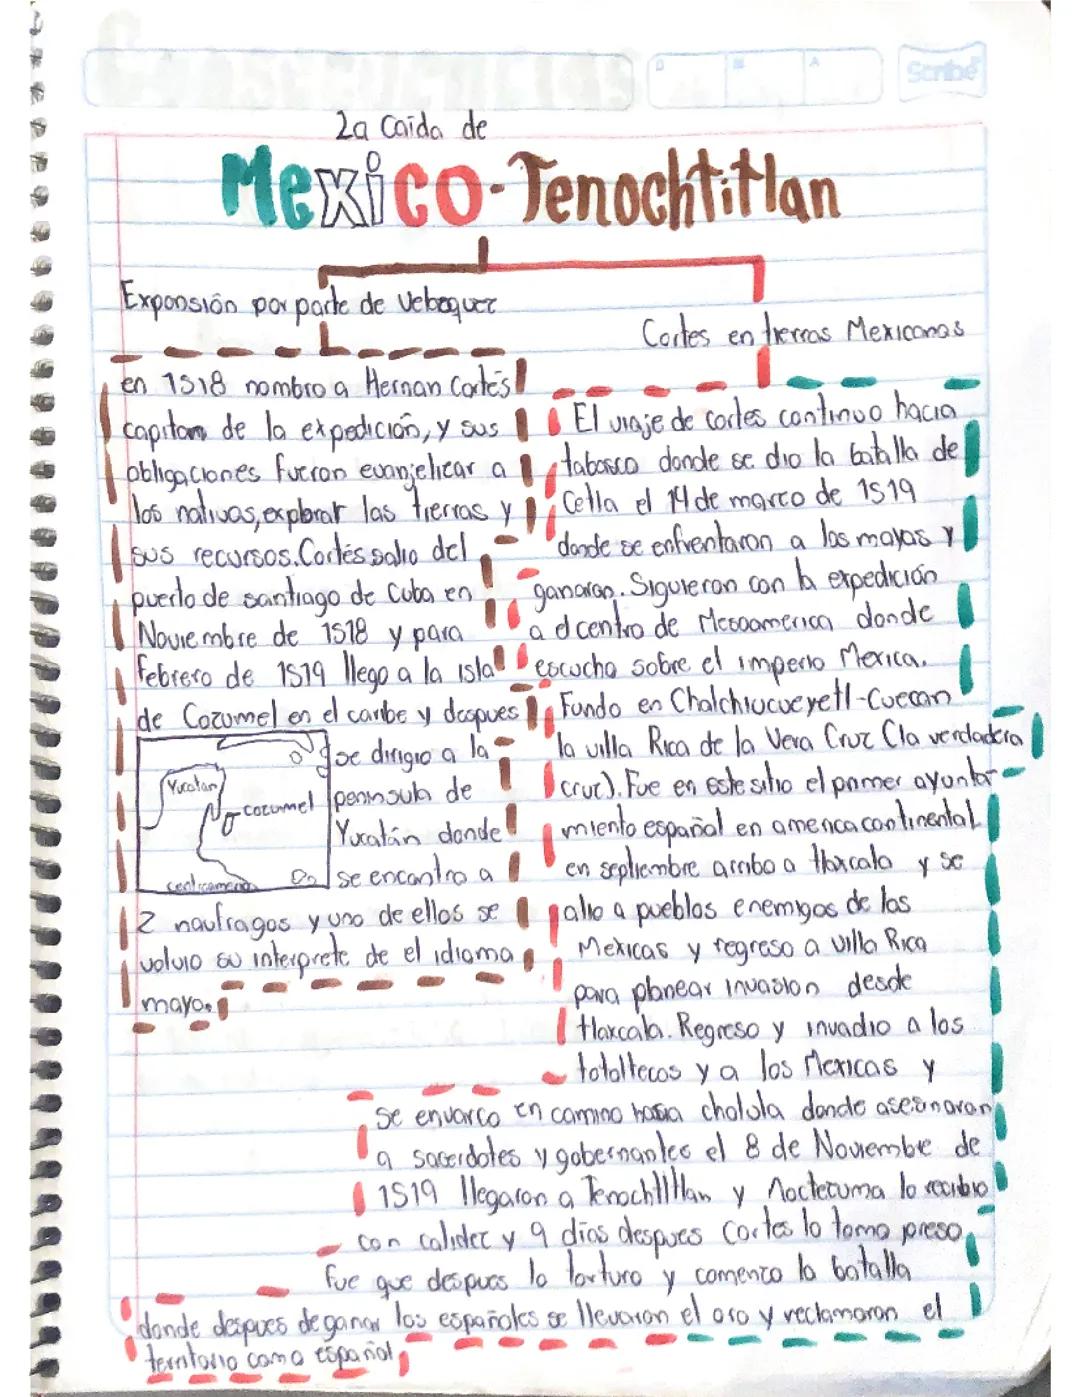 Scribe
D
M
A
La Caida de
Mexico-Tenochtitlan
Expansión por parte de Velaquez
en 1518 nombro a Hernan Cortés
capitan de la expedición, y sus
obligaciones fueron evanjelicar a
los nativos, explorar las tierras y
sus recursos. Cortés salio del
puerto de santiago de Cuba en
Noviembre de 1518 y para
febrero de 1519 llego a la isla
de Cozumel en el caribe y despues
se dirigio a la
peninsula de
Yucatán donde
se encontro a
Yucatan
cozumel
centroamerica
2 naufragos y uno de ellos se
volvio su interprete de el idioma
maya.
Cortes en tierras Mexicanas
El viaje de cortes continuo hacia
tabasco donde se dio la batalla de
Cetla el 14 de marzo de 1519
donde se enfrentaron a los mayas y
ganaron. Siguieron con la expedición
a el centro de Mesoamerica donde
escucho sobre el imperio Mexica.
Fundo en Chalchiucueyetl-Cuecan
la villa Rica de la Vera Cruz (la verdadera
cruz). Fue en este sitio el primer ayunta-
miento español en america continental
en septiembre arribo a tlaxcala y se
alio a pueblos enemigos de los
Mexicas y regreso a villa Rica
para planear invasion desde
tlaxcala. Regreso y invadio a los
totoltecos y a los Mexicas y
se envarco en camino hacia cholula donde asesinaron
a sacerdotes y gobernantes el 8 de Noviembre de
1519 llegaron a Tenochtitlan y Moctezuma lo recibio
con calidez y 9 dias despues Cortes lo tomo preso,
fue que despues lo torturo y comenzo la batalla
donde despues de ganar los españoles se llevaron el oro y reclamaron el
territorio como español.